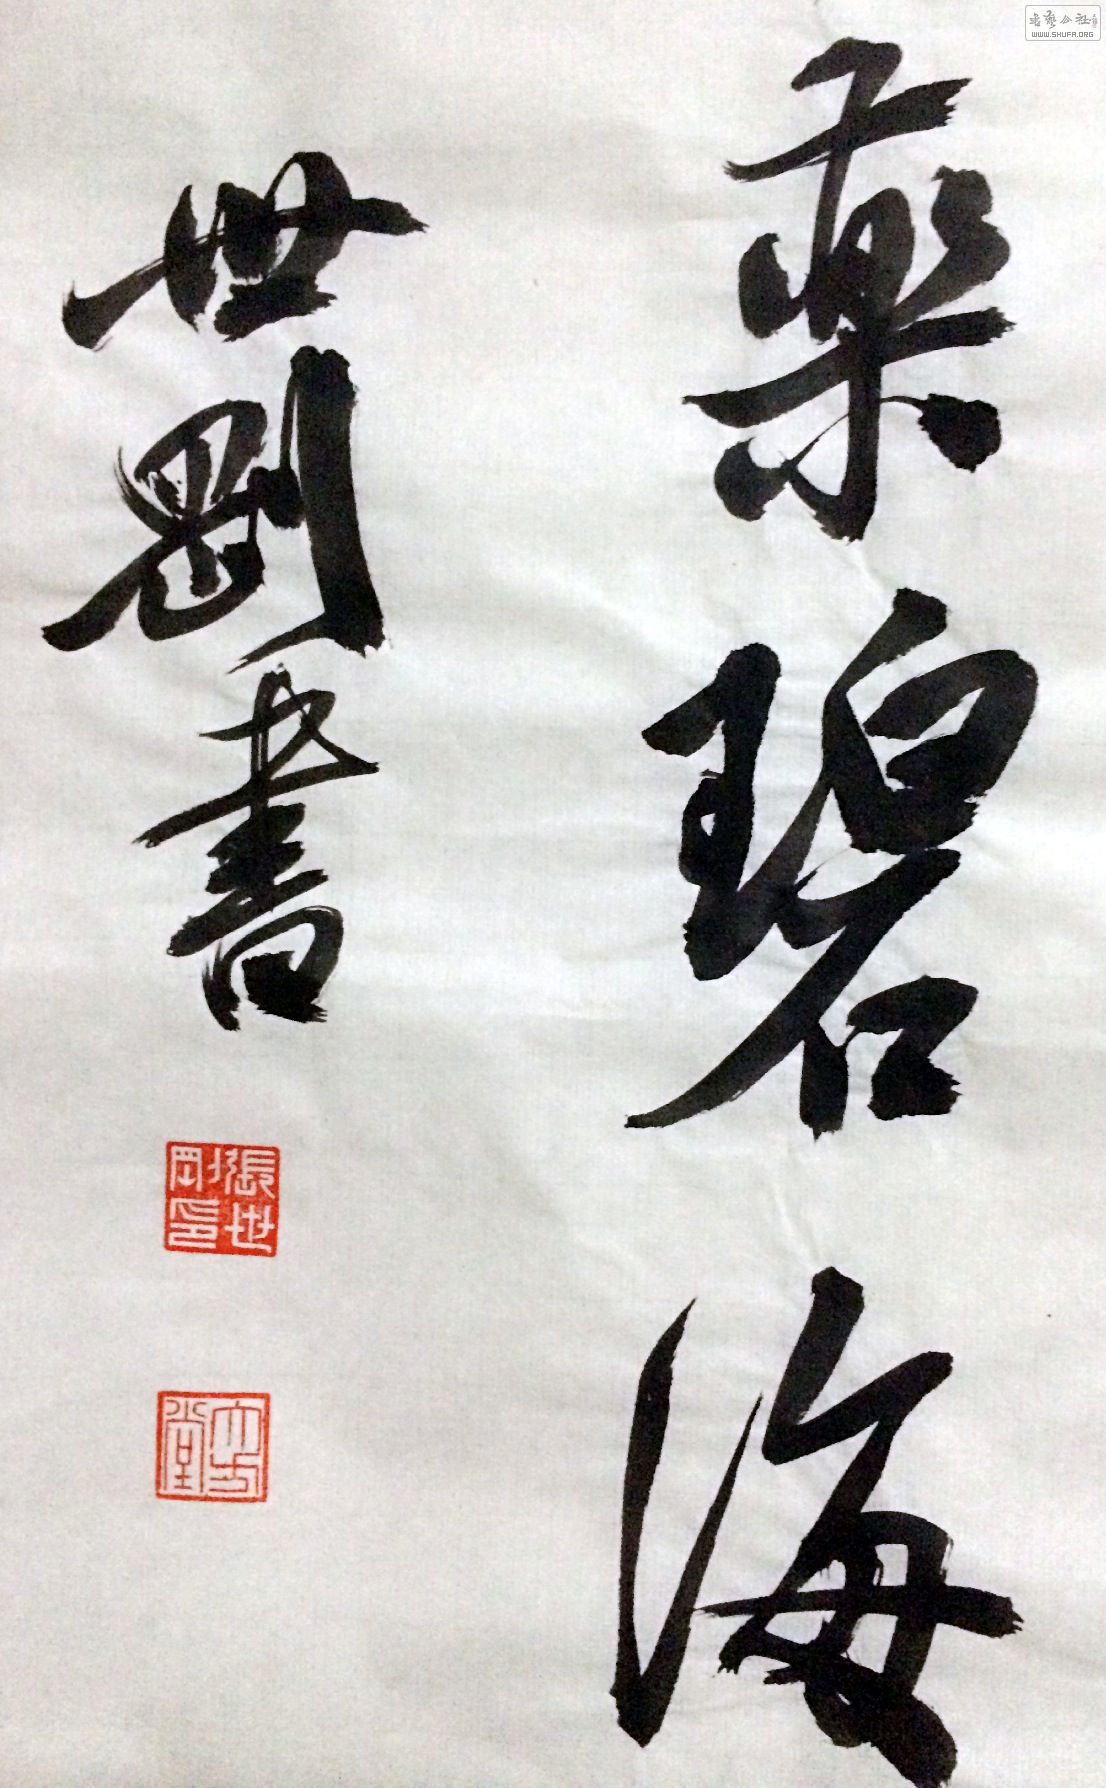 藥碧海
世剛書
張世剛印
大方堂
書藝公社
WWW.SHUFA.ORG